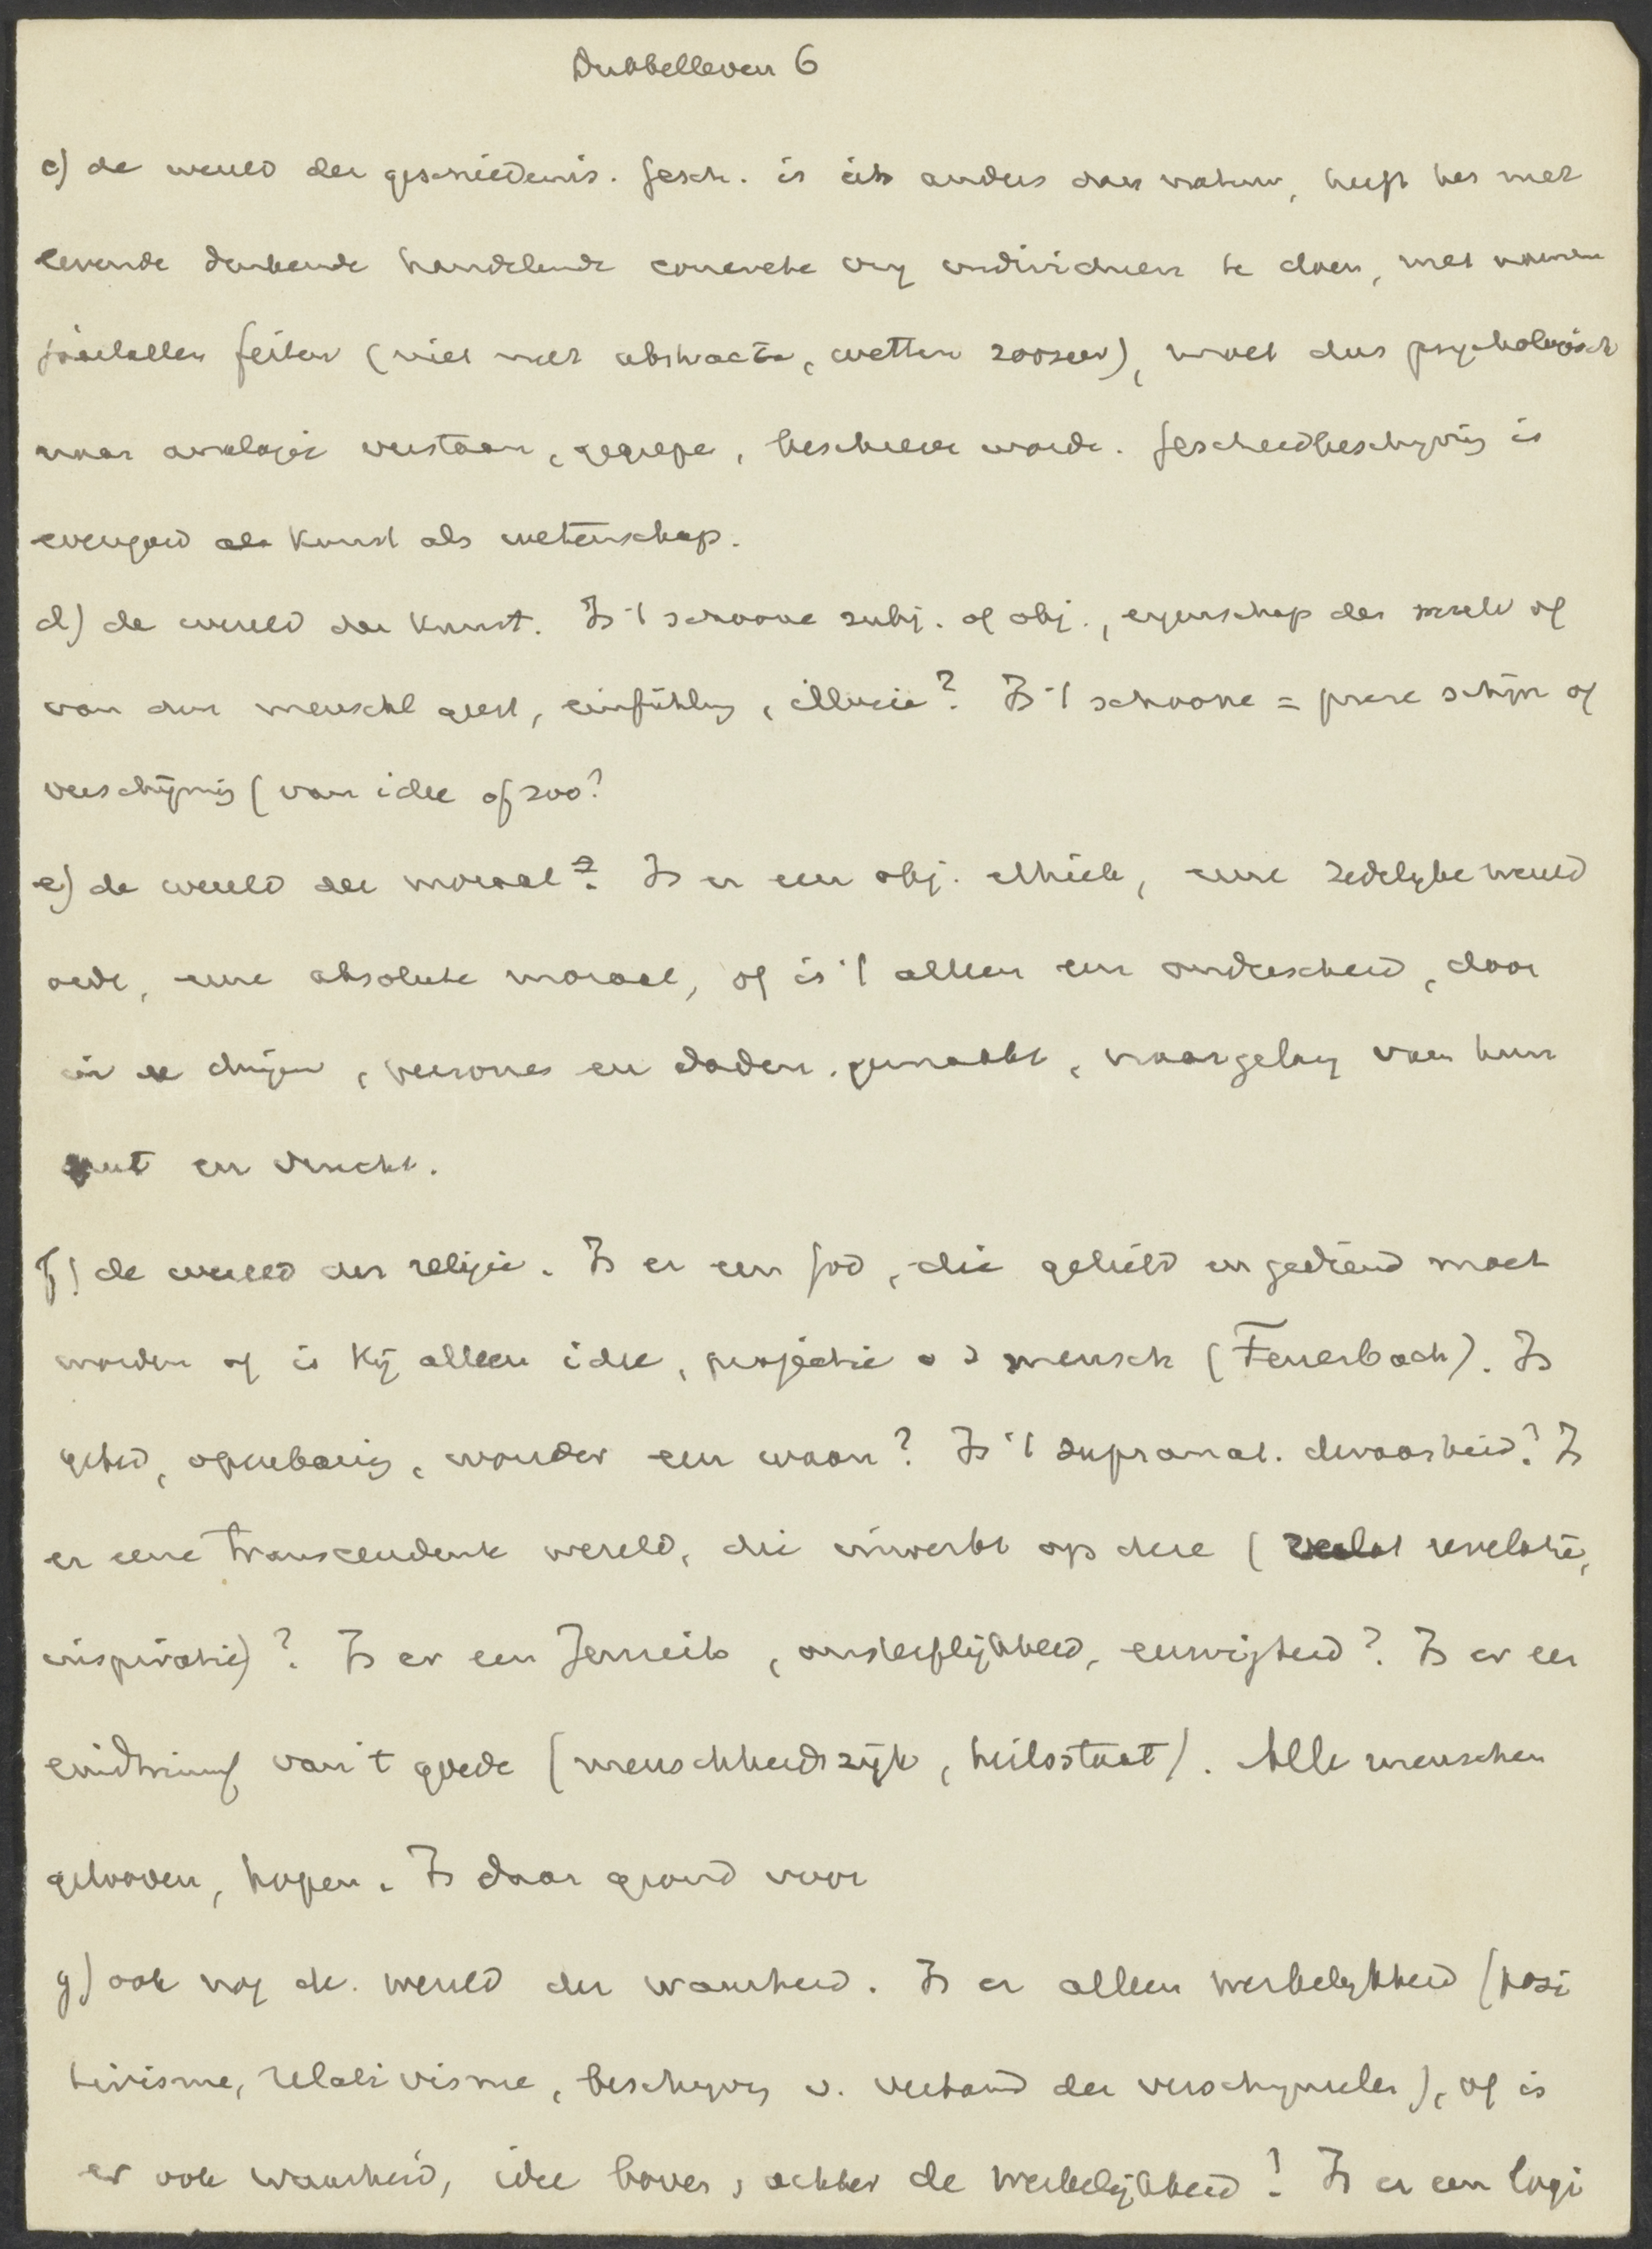 Dubbelleven 6
c) de wereld der geschiedenis. Gesch. is iets anders dan natuur, heeft het met
levende denkende handelende concrete individuen te doen, met namen
jaartallen feiten (niet met abstracta, wetten zoozeer), moet dus psychologisch
naar analogie verstaan, gegrepe, beschreve worde. Geschiedbeschryving is
evengoed als kunst als wetenschap.
d) de wereld der kunst. Is 't schoone subj. of obj., eigenschap der wereld of
van den menschl geest, einfühlung, illusie? Is 't schoone = pure schijn of
verschijning (van idee of zoo?
e) de wereld der moraal? Is er een obj. ethiek, eene zedelyke wereld
orde, eene absolute moraal, of is 't alleen een onderscheid, door
in de dingen, persones en daden, gemaakt, naargelang van hun
nut en vrucht.
f) de wereld der religie. Is er een God, die geliefd en gediend moet
worden of is Hij alleen idee, projectie v d mensch (Feuerbach). Is
gebed, openbaring, wonder een waan? Is 't supranat. dwaasheid? Is
er eene transcendente wereld, die inwerkt op deze (revelatie,
inspiratie)? Is er een Jenseits, onsterflijkheid, eeuwigheid? Is er een
eindtriumf van 't goede (menschheidsrijk, heilsstaat). Alle menschen
gelooven, hopen. Is daar grond voor
g) ook nog de wereld der waarheid. Is er alleen werkelykheid (posi
tivisme, relativisme, beschryving v. verband der verschynselen), of is
er ook waarheid, idee boven, achter de werkelijkheid? Is er een logi